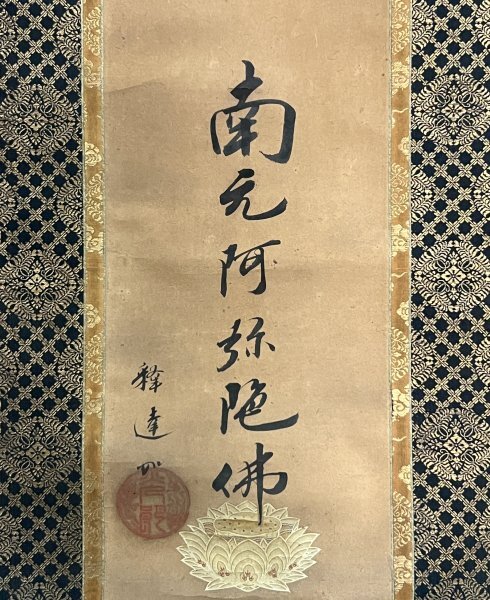 南无阿弥陁佛
釋達如